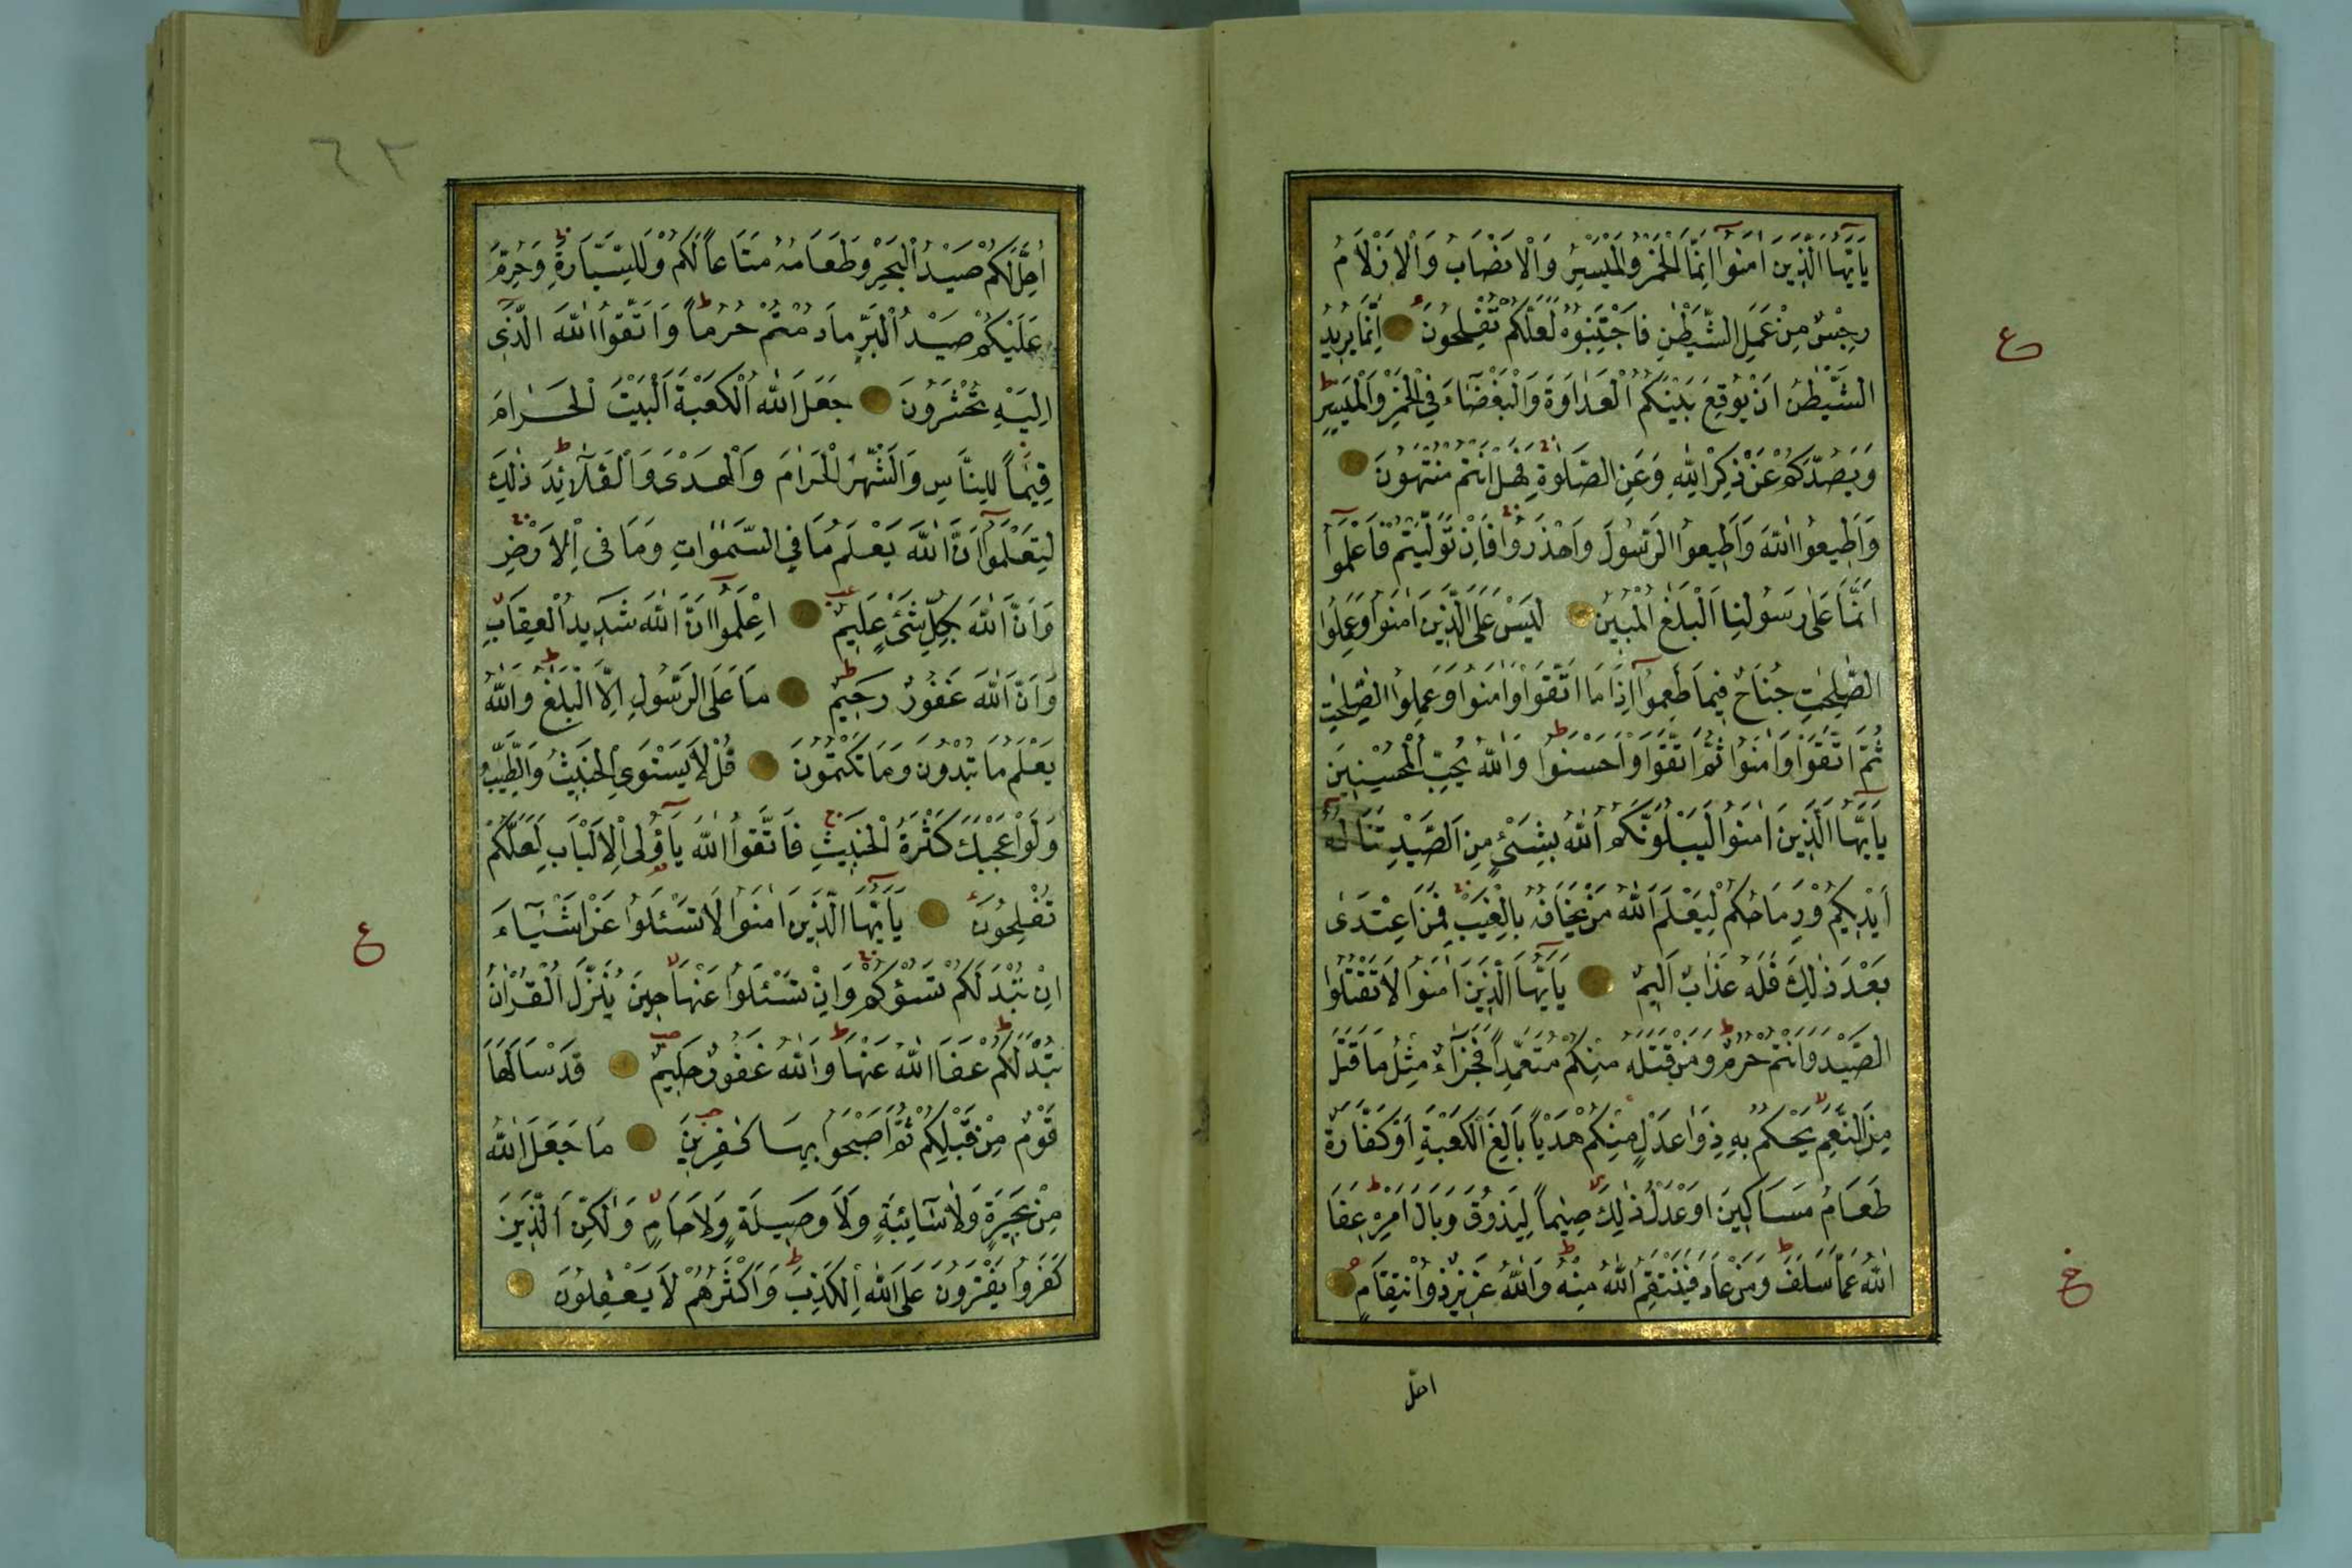 يَٓا اَيُّهَا الَّذٖينَ اٰمَنُٓوا اِنَّمَا الْخَمْرُ وَالْمَيْسِرُ وَالْاَنْصَابُ وَالْاَزْلَامُ
رِجْسٌ مِنْ عَمَلِ الشَّيْطٰنِ فَاجْتَنِبُوهُ لَعَلَّكُمْ تُفْلِحُونَ اِنَّمَا يُرٖيدُ
الشَّيْطٰنُ اَنْ يُوقِعَ بَيْنَكُمُ الْعَدَاوَةَ وَالْبَغْضَٓاءَ فِي الْخَمْرِ وَالْمَيْسِرِ
وَيَصُدَّكُمْ عَنْ ذِكْرِ اللّٰهِ وَعَنِ الصَّلٰوةِ فَهَلْ اَنْتُمْ مُنْتَهُونَ
وَاَطٖيعُوا اللّٰهَ وَاَطٖيعُوا الرَّسُولَ وَاحْذَرُوا فَاِنْ تَوَلَّيْتُمْ فَاعْلَمُٓوا
اَنَّمَا عَلٰى رَسُولِنَا الْبَلٰغُ الْمُبٖينُ لَيْسَ عَلَى الَّذٖينَ اٰمَنُوا وَعَمِلُوا
الصّٰلِحٰتِ جُنَاحٌ فٖيمَا طَعِمُٓوا اِذَا مَا اتَّقَوْا وَاٰمَنُوا وَعَمِلُوا الصّٰلِحٰتِ
ثُمَّ اتَّقَوْا وَاٰمَنُوا ثُمَّ اتَّقَوْا وَاَحْسَنُوا وَاللّٰهُ يُحِبُّ الْمُحْسِنٖينَ
يَٓا اَيُّهَا الَّذٖينَ اٰمَنُوا لَيَبْلُوَنَّكُمُ اللّٰهُ بِشَيْءٍ مِنَ الصَّيْدِ تَنَالُهُٓ
اَيْدٖيكُمْ وَرِمَاحُكُمْ لِيَعْلَمَ اللّٰهُ مَنْ يَخَافُهُ بِالْغَيْبِ فَمَنِ اعْتَدٰى
بَعْدَ ذٰلِكَ فَلَهُ عَذَابٌ اَلٖيمٌ يَٓا اَيُّهَا الَّذٖينَ اٰمَنُوا لَا تَقْتُلُوا
الصَّيْدَ وَاَنْتُمْ حُرُمٌ وَمَنْ قَتَلَهُ مِنْكُمْ مُتَعَمِّدًا فَجَزَٓاءٌ مِثْلُ مَا قَتَلَ
مِنَ النَّعَمِ يَحْكُمُ بِهٖ ذَوَا عَدْلٍ مِنْكُمْ هَدْيًا بَالِغَ الْكَعْبَةِ اَوْ كَفَّارَةٌ
طَعَامُ مَسَاكٖينَ اَوْ عَدْلُ ذٰلِكَ صِيٰمًا لِيَذُوقَ وَبَالَ اَمْرِهٖ عَفَا
اللّٰهُ عَمَّا سَلَفَ وَمَنْ عَادَ فَيَنْتَقِمُ اللّٰهُ مِنْهُ وَاللّٰهُ عَزٖيزٌ ذُوانْتِقَامٍ
احل
ع
ع
٦٢
اُحِلَّ لَكُمْ صَيْدُ الْبَحْرِ وَطَعَامُهُ مَتَاعًا لَكُمْ وَلِلسَّيَّارَةِ وَحُرِّمَ
عَلَيْكُمْ صَيْدُ الْبَرِّ مَا دُمْتُمْ حُرُمًا وَاتَّقُوا اللّٰهَ الَّذٖٓي
اِلَيْهِ تُحْشَرُونَ جَعَلَ اللّٰهُ الْكَعْبَةَ الْبَيْتَ الْحَرَامَ
قِيٰمًا لِلنَّاسِ وَالشَّهْرَ الْحَرَامَ وَالْهَدْيَ وَالْقَلَٓائِدَ ذٰلِكَ
لِتَعْلَمُٓوا اَنَّ اللّٰهَ يَعْلَمُ مَا فِي السَّمٰوَاتِ وَمَا فِي الْاَرْضِ
وَاَنَّ اللّٰهَ بِكُلِّ شَيْءٍ عَلٖيمٌ اِعْلَمُٓوا اَنَّ اللّٰهَ شَدٖيدُ الْعِقَابِ
وَاَنَّ اللّٰهَ غَفُورٌ رَحٖيمٌ مَا عَلَى الرَّسُولِ اِلَّا الْبَلٰغُ وَاللّٰهُ
يَعْلَمُ مَا تُبْدُونَ وَمَا تَكْتُمُونَ قُلْ لَا يَسْتَوِي الْخَبٖيثُ وَالطَّيِّبُ
وَلَوْ اَعْجَبَكَ كَثْرَةُ الْخَبٖيثِ فَاتَّقُوا اللّٰهَ يَٓا اُولِي الْاَلْبَابِ لَعَلَّكُمْ
تُفْلِحُونَ يَٓا اَيُّهَا الَّذٖينَ اٰمَنُوا لَا تَسْـَٔلُوا عَنْ اَشْيَٓاءَ
اِنْ تُبْدَ لَكُمْ تَسُؤْكُمْ وَاِنْ تَسْـَٔلُوا عَنْهَا حٖينَ يُنَزَّلُ الْقُرْاٰنُ
تُبْدَ لَكُمْ عَفَا اللّٰهُ عَنْهَا وَاللّٰهُ غَفُورٌ حَلٖيمٌ قَدْ سَاَلَهَا
قَوْمٌ مِنْ قَبْلِكُمْ ثُمَّ اَصْبَحُوا بِهَا كٰفِرٖينَ مَا جَعَلَ اللّٰهُ
مِنْ بَحٖيرَةٍ وَلَا سَٓائِبَةٍ وَلَا وَصٖيلَةٍ وَلَا حَامٍ وَلٰكِنَّ الَّذٖينَ
كَفَرُوا يَفْتَرُونَ عَلَى اللّٰهِ الْكَذِبَ وَاَكْثَرُهُمْ لَا يَعْقِلُونَ